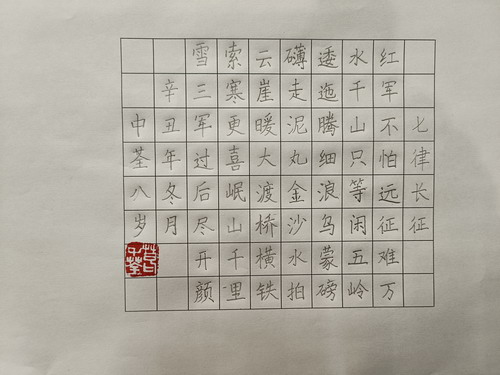 七律长征
红军不怕远征难万
水千山只等闲五岭
逶迤腾细浪乌蒙磅
礴走泥丸金沙水拍
云崖暖大渡桥横铁
索寒更喜岷山千里
雪三军过后尽开颜
辛丑年冬月
中荃八岁